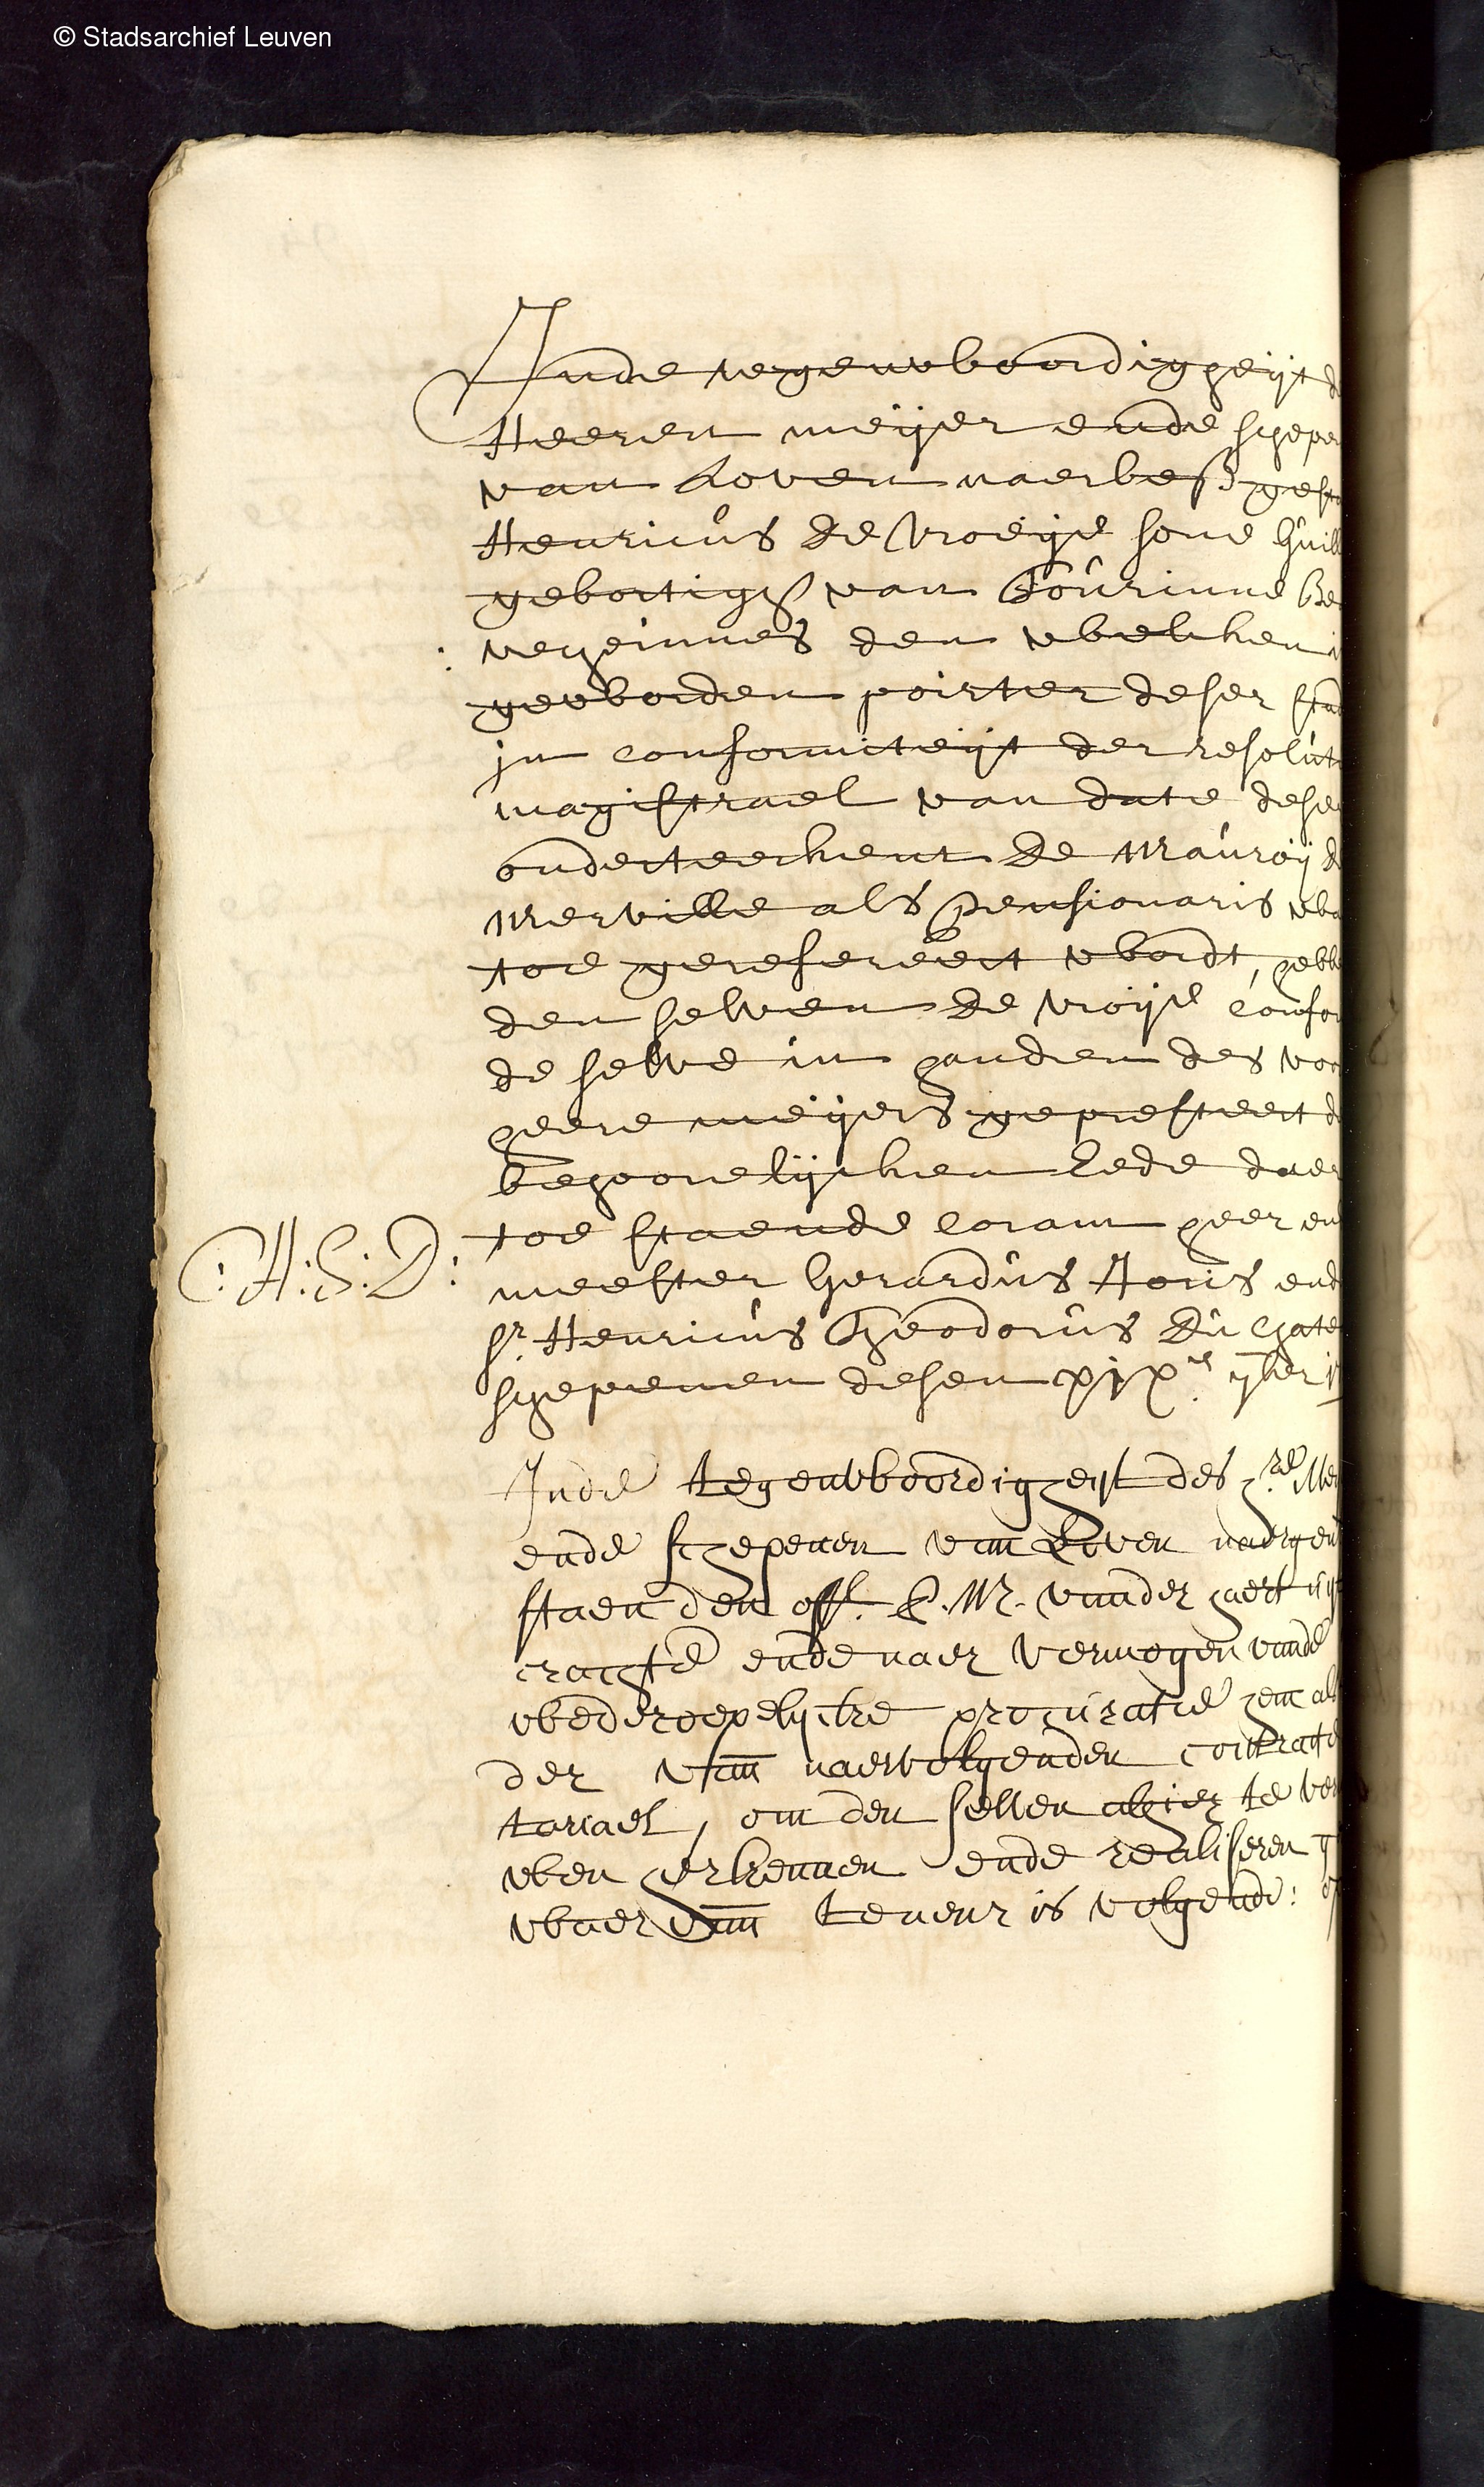 © Stadsarchief Leuven
Inde tegenwoordigheijt d
Heeren meijer ende schepe
van Loven naerbesz gesta
Henricus De Vroeije sone Guill
gebortigh van Tourinne Be
vecheinnes den welcken i
geworden poirter deser stad
in conformiteijt der resolut
magistrael van date dese
onderteeckent De Mauroij d
Merville als pensionaris wa
toe gerefereert wordt, hebb
den selven De vroije confor
de selve in handen des voo
heere meijers gepresteert d
behoorelijcken Eede daer
toe staende coram heer en
:H:S:D: meester Gerardus Horis end
sr. Henricus Theodorus Du Chate
schepenen desen xixe. 7ber 1
Inde tegenwoordigheijt des h.re Me
ende schepenen van Loven naergen
staen den off. vander haert uijt
crachte ende naer vermogen vande
wederoepelijcke procuratie hem al
der van naervolgenden contracte
tariael, om den selven alhier te ver
wen erkennen ende realiseren
waer van teneur is volgende: